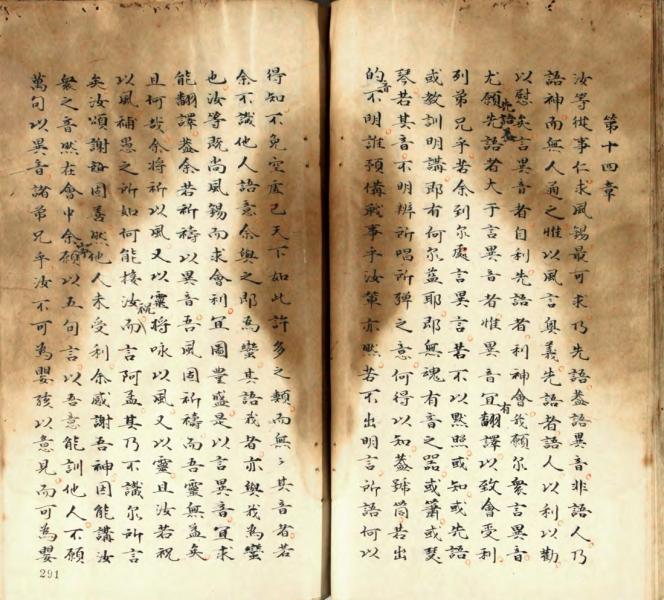 第十四章
汝等從事仁求風錫最可求乃先語葢語異音非語人乃
語神而無人通之惟以風言奥義先語者語人以利以勸
以慰矣言異音者自利先語者利神會我願尔衆言異音
尤願先語者大于言異音者惟異音宜有翻譯以致會受利
列弟兄乎若余到尔處言異言若不以黙照或知或先語
或教訓明講即有何尔益耶即無魂有音之器或簫或琴
琴若其音不明辨所唱所彈之意何得以知葢號筒若出
的音不明誰預備戰事乎汝等亦然若不出明言所語何以
得知不免空虚已天下如此許多之類而無其音者若
余不識他人語意余與之即為蠻其語我者亦與我為蠻
也汝等既尚風錫而求會利宜圖豐盛是以言異音宜求
能翻譯葢余若祈禱以異音吾風固祈禱而吾靈無益矣
且何哉余將祈以風又以靈將咏以風又以靈且汝若祝
以風補愚之所如何能接汝祝而言阿孟其乃不識尔所言
矣汝頌謝詞固善然他人未受利余感謝吾神因能講汝
衆之音然在會中余寧願以五句言以吾意能訓他人不願
萬句以異音諸弟兄乎汝不可為嬰孩以意見而可為嬰
291